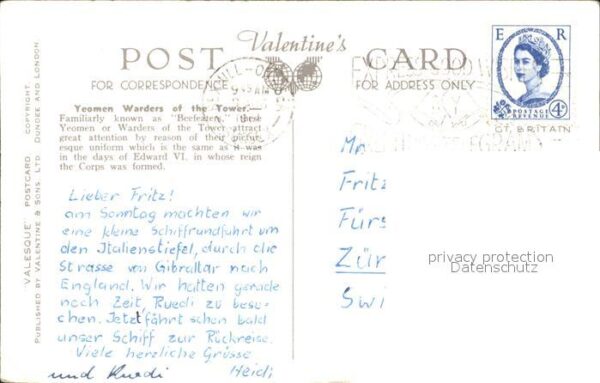 Valentine's
POST CARD
FOR CORRESPONDENCE
FOR ADDRESS ONLY
E R
POSTAGE REVENUE
4D
GT. BRITAIN
Yeomen Warders of the Tower.—
Familiarly known as "Beefeaters," these
Yeomen or Warders of the Tower attract
great attention by reason of their pictur-
esque uniform which is the same as it was
in the days of Edward VI, in whose reign
the Corps was formed.
"VALESQUE" POSTCARD COPYRIGHT.
PUBLISHED BY VALENTINE & SONS, LTD. DUNDEE AND LONDON.
Lieber Fritz!
am Sonntag machten wir
eine kleine Schiffrundfahrt um
den Italienstiefel, durch die
Strasse von Gibraltar nach
England. Wir hatten gerade
noch Zeit, Ruedi zu besu-
chen. Jetzt fährt schon bald
unser Schiff zur Rückreise.
Viele herzliche Grüsse
Heidi
und Ruedi
Mr
Fritz
Fürs
Zür
Swi
privacy protection
Datenschutz